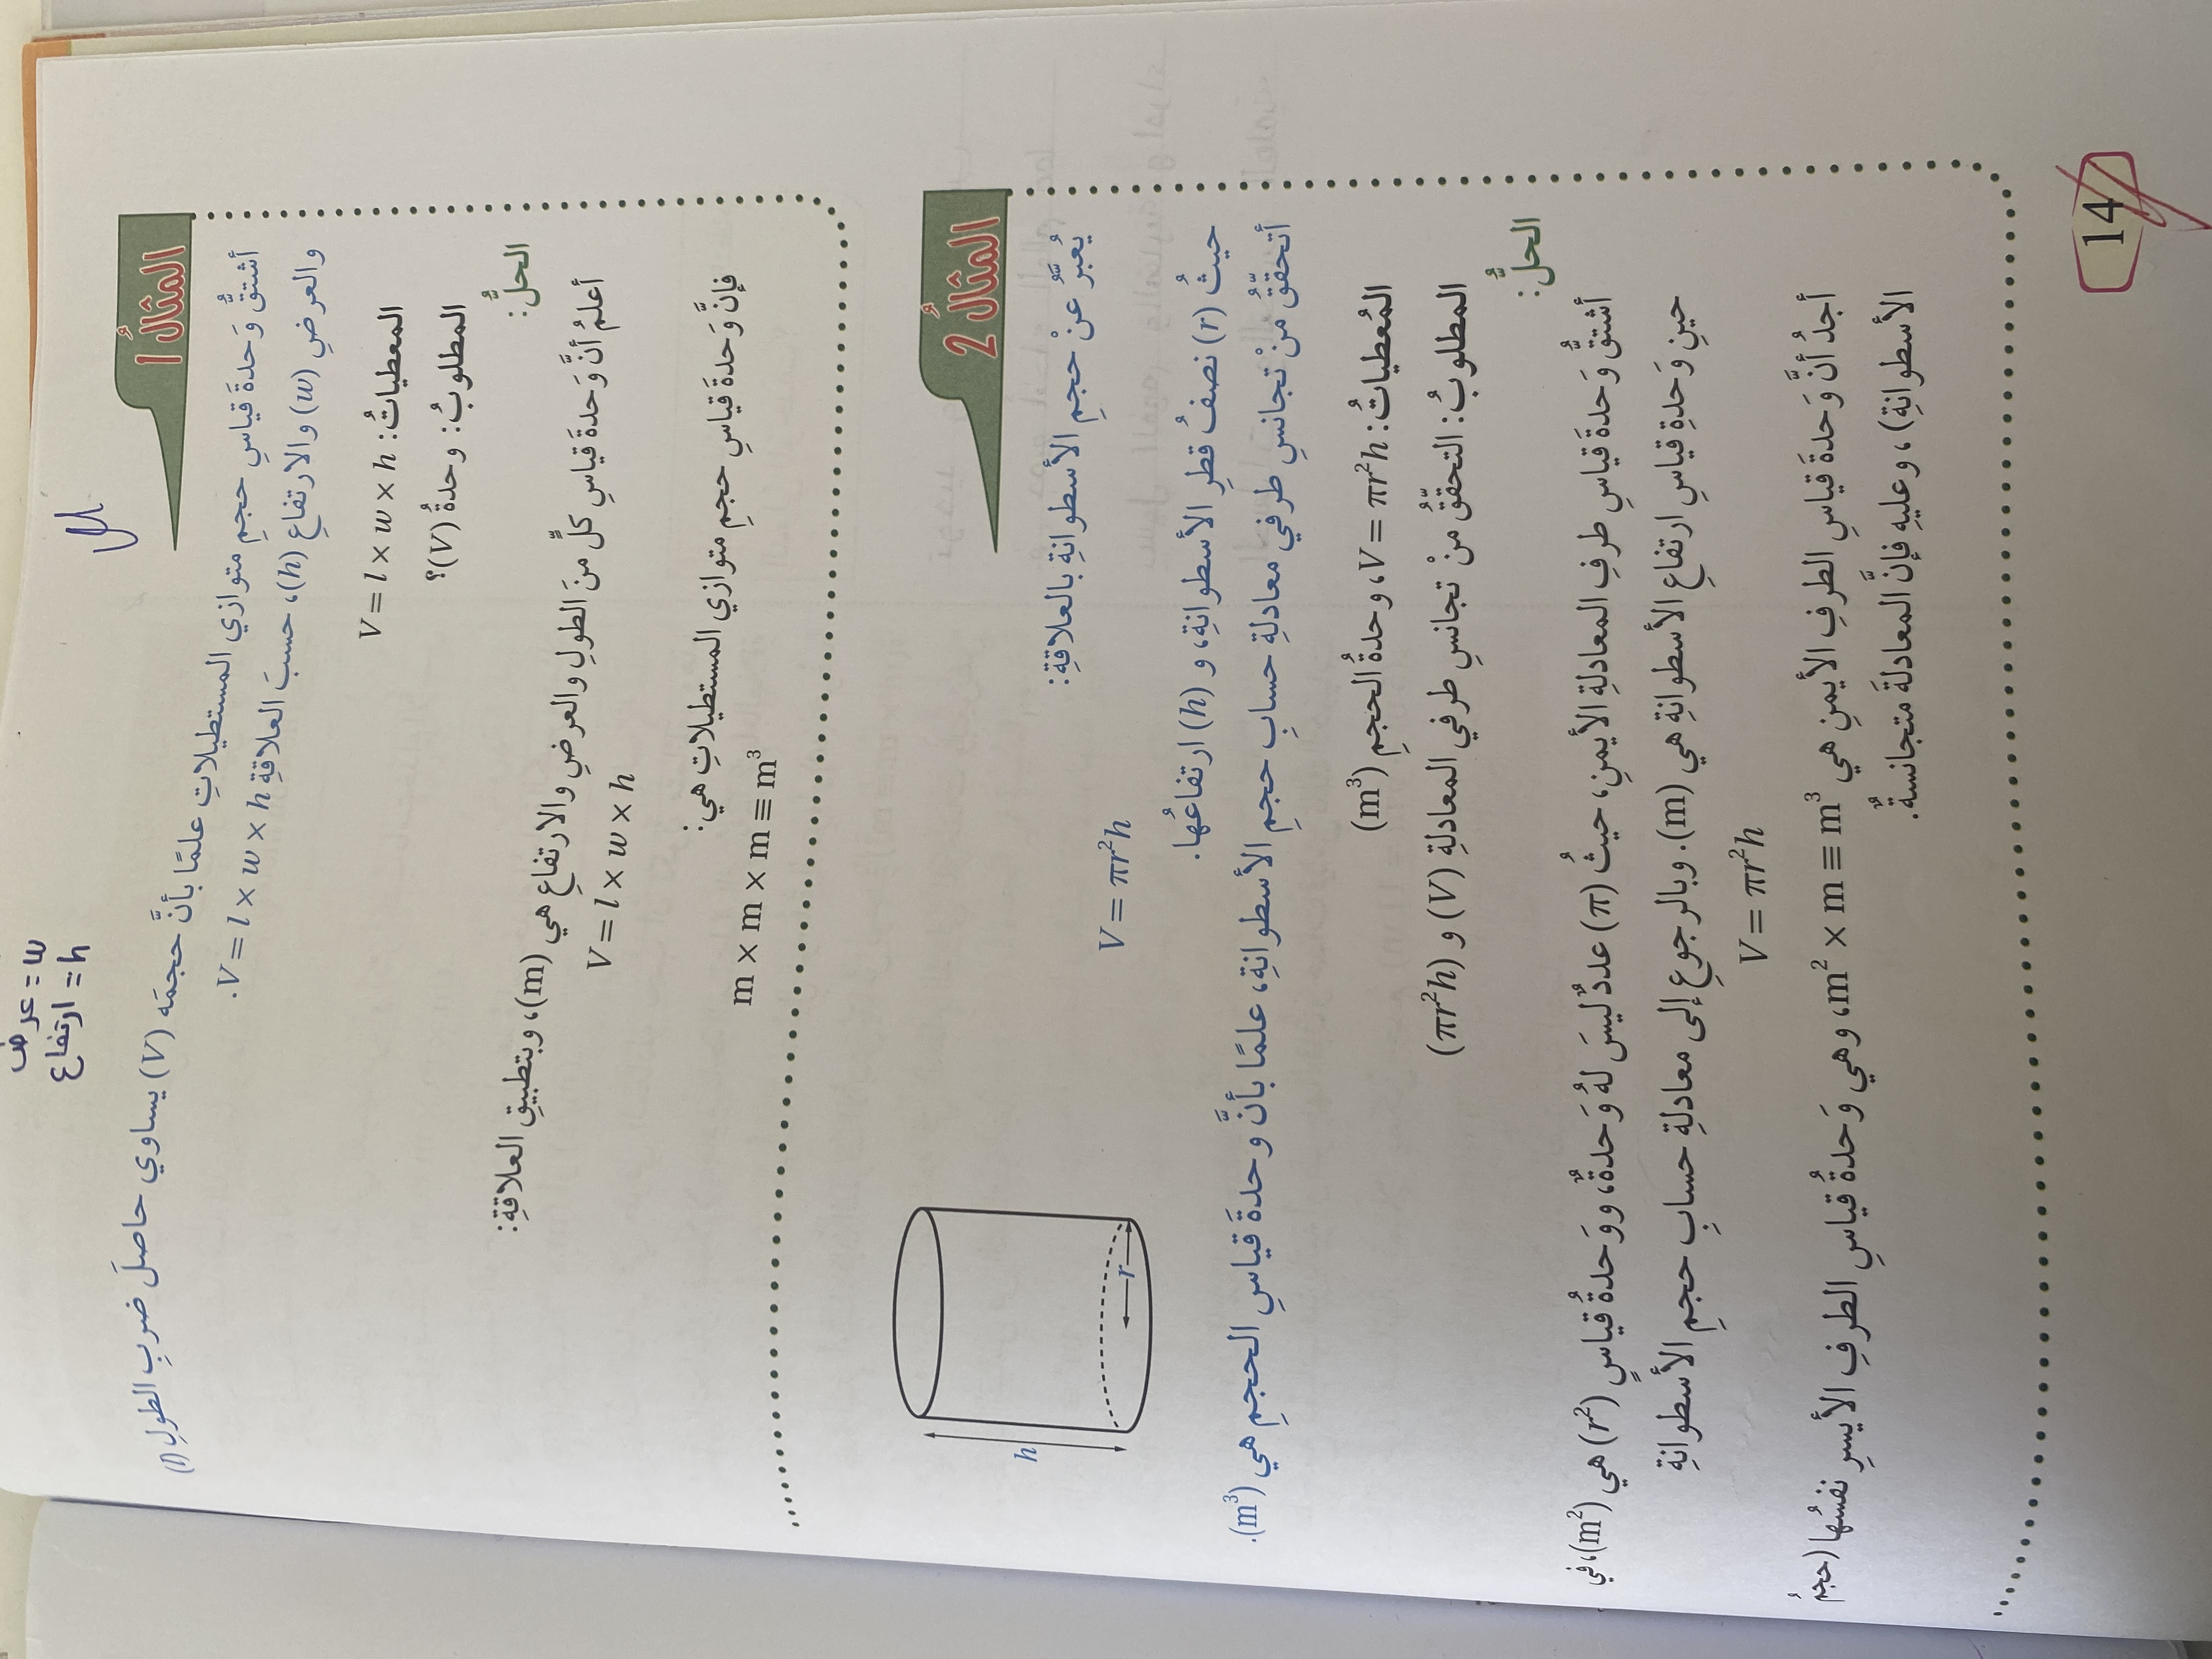 w = عرض
h = ارتفاع
المثالُ 1
أشتقُّ وَحدةَ قياسِ حجمِ متوازي المستطيلاتِ علمًا بأنَّ حجمَه (V) يساوي حاصلَ ضربِ الطولِ (l)
والعرضِ (w) والارتفاعِ (h)، حسبَ العلاقةِ V = l × w × h.
المعطياتُ: V = l × w × h
المطلوبُ: وحدةُ (V)؟
الحلُّ:
أعلمُ أنَّ وَحدةَ قياسِ كلٍّ منَ الطولِ والعرضِ والارتفاعِ هي (m)، وبتطبيقِ العلاقةِ:
V = l × w × h
فإنَّ وَحدةَ قياسِ حجمِ متوازي المستطيلاتِ هي:
m × m × m ≡ m³
المثالُ 2
يُعبَّرُ عنْ حجمِ الأسطوانةِ بالعلاقةِ:
V = πr²h
حيثُ (r) نصفُ قطرِ الأسطوانةِ، و (h) ارتفاعُها.
أتحقّقُ منْ تجانسِ طرفي معادلةِ حسابِ حجمِ الأسطوانةِ، علمًا بأنَّ وحدةَ قياسِ الحجمِ هي (m³).
h
r
المُعطياتُ: V = πr²h، وحدةُ الحجمِ (m³)
المطلوبُ: التحققُّ منْ تجانسِ طرفي المعادلةِ (V) و (πr²h)
الحلُّ:
أشتقُّ وَحدةَ قياسِ طرفِ المعادلةِ الأيمنِ، حيثُ (π) عددٌ ليسَ لهُ وَحدةٌ، ووَحدةُ قياسِ (r²) هي (m²)، في
حينِ وَحدةِ قياسِ ارتفاعِ الأسطوانةِ هي (m). وبالرجوعِ إلى معادلةِ حسابِ حجمِ الأسطوانةِ
V = πr²h
أجدُ أنَّ وَحدةَ قياسِ الطرفِ الأيمنِ هي m² × m ≡ m³، وهي وَحدةُ قياسِ الطرفِ الأيسرِ نفسُها (حجمُ
الأسطوانةِ)، وعليهِ فإنَّ المعادلةَ متجانسةٌ.
14